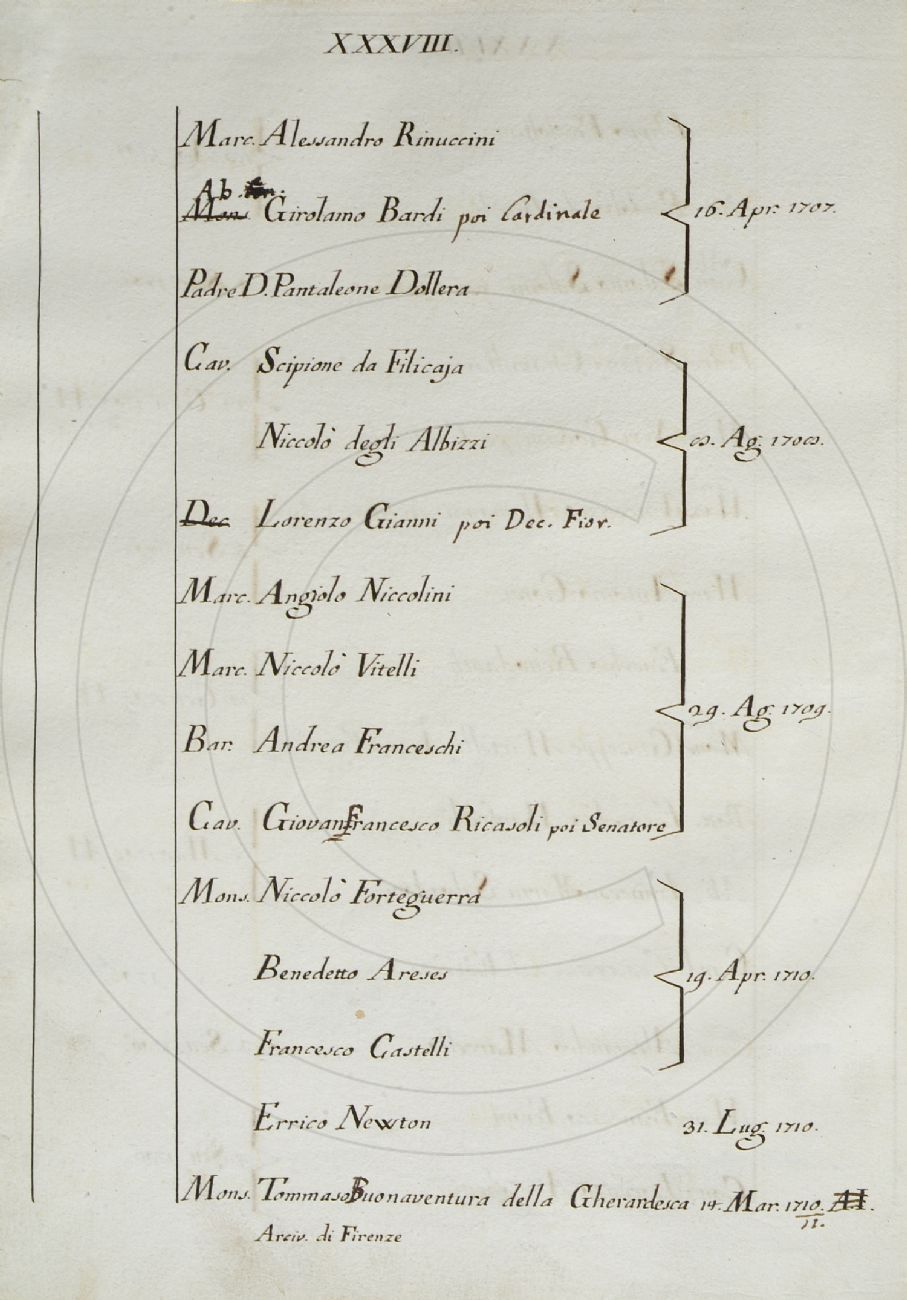 XXXVIII.
Marc. Alessandro Rinuccini
Ab.
Mons. Girolamo Bardi poi Cardinale 16. Apr. 1707.
Padre D. Pantaleone Dollera
Cav. Scipione da Filicaja
Niccolò degli Albizzi 8. Ag. 1708.
Dec Lorenzo Gianni poi Dec. Fior.
Marc. Angiolo Niccolini
Marc. Niccolò Vitelli
29. Ag. 1709.
Bar. Andrea Franceschi
Cav. Giovanfrancesco Ricasoli poi Senatore
Mons. Niccolò Forteguerra
Benedetto Areses 19. Apr. 1710.
Francesco Castelli
Errico Newton 31. Lug. 1710.
Mons. Tommaso Buonaventura della Gherardesca 14. Mar. 1710. AI.
11.
Arciv. di Firenze